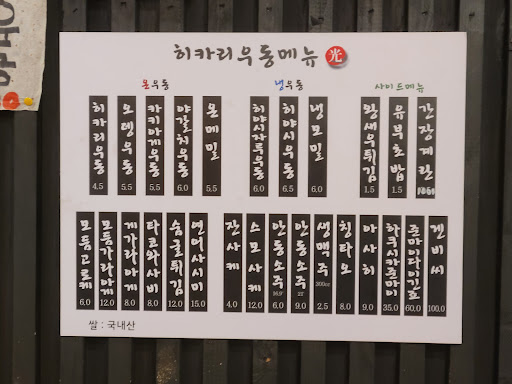 히카리우동메뉴 光
온우동
히카리우동 4.5
오뎅우동 5.5
카키아게우동 5.5
야갈치우동 6.0
온메밀 5.5
냉우동
히야시자루우동 6.0
히야시우동 6.5
냉모밀 6.0
사이드메뉴
왕새우튀김 1.5
유부초밥 1.5
간장계란
모듬고로케 6.0
모듬가라아게 12.0
게가라아게 8.0
타코와사비 8.0
숨굴튀김 12.0
연어사시미 15.0
잔사케 4.0
스모사케 12.0
안동소주 6.0
안동소주 22 9.0
생맥주 300cc 2.5
칭타오 8.0
아사히 9.0
하쿠시카준마이 35.0
준마이다이긴죠 60.0
겐비씨 100.0
쌀 : 국내산